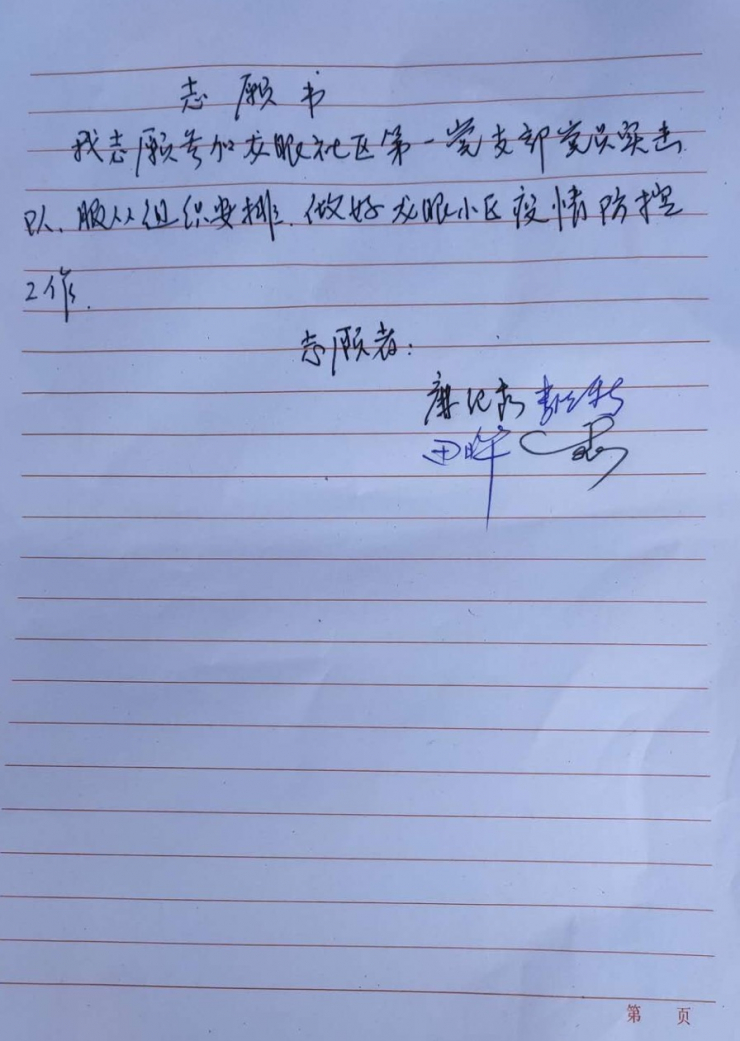 志愿书
我志愿参加龙眼社区第一党支部党员突击
队、服从组织安排、做好龙眼小区疫情防控
工作.
志愿者：
田晖
第 页